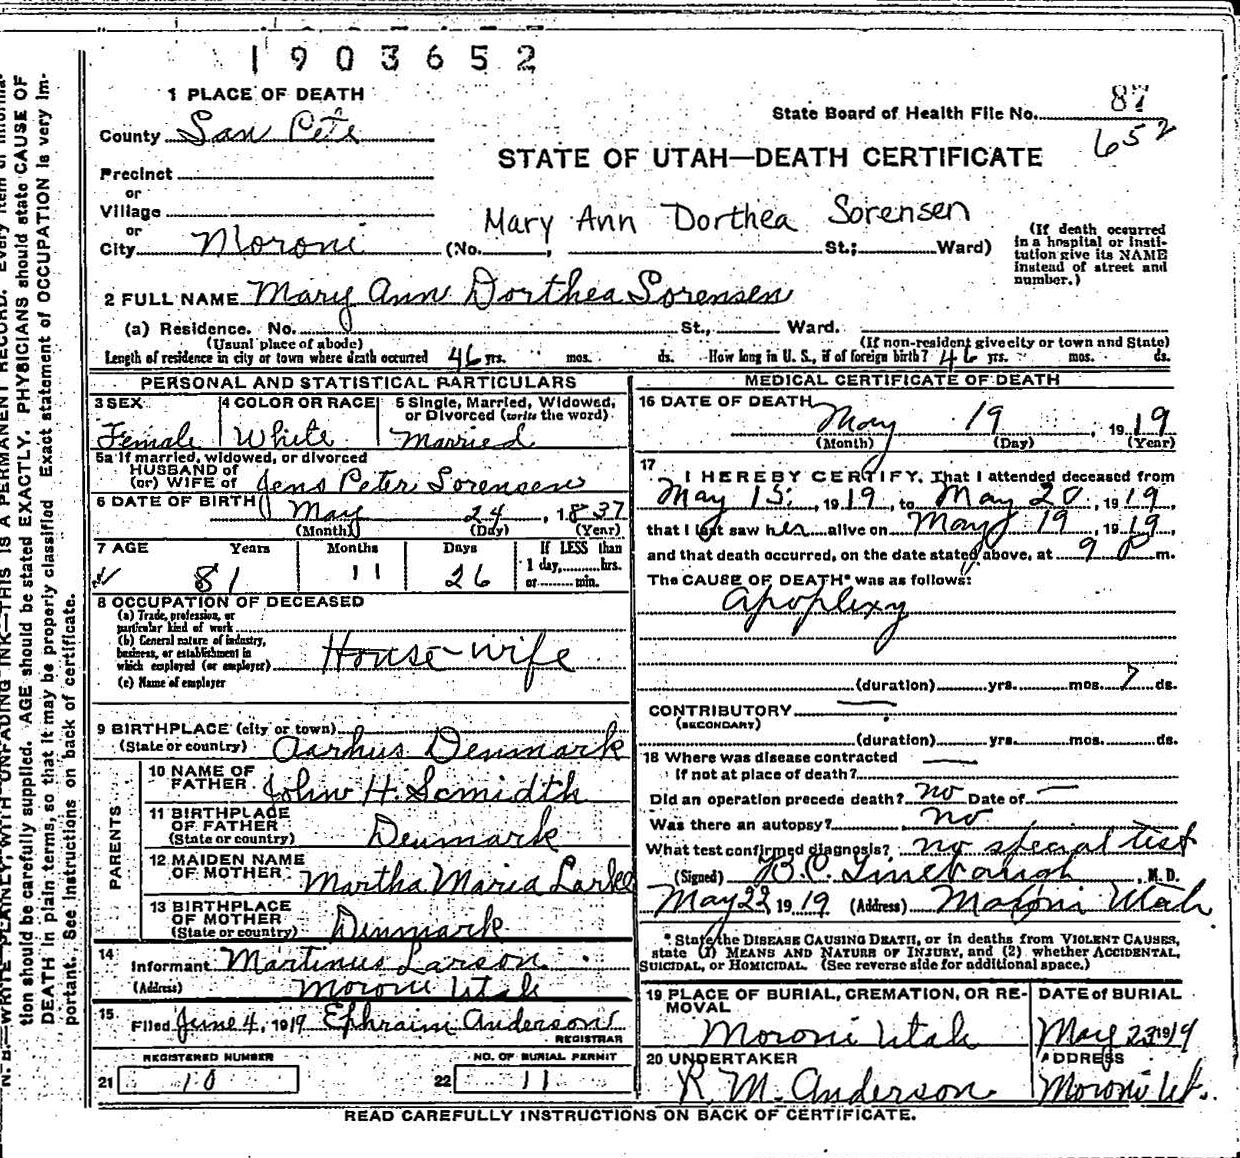 1903652
1 PLACE OF DEATH
State Board of Health File No. 87
652
County San Pete
STATE OF UTAH—DEATH CERTIFICATE
Precinct
or
Village
or
City Moroni (No. , St.; Ward)
Mary Ann Dorthea Sorensen
(If death occurred in a hospital or institution give its NAME instead of street and number.)
2 FULL NAME Mary Ann Dorthea Sorensen
(a) Residence. No. St., Ward.
(Usual place of abode) (If non-resident give city or town and State)
Length of residence in city or town where death occurred 46 yrs. mos. ds. How long in U. S., if of foreign birth? 46 yrs. mos. ds.
PERSONAL AND STATISTICAL PARTICULARS
3 SEX Female
4 COLOR OR RACE White
5 Single, Married, Widowed, or Divorced (write the word) Married
5a If married, widowed, or divorced
HUSBAND of
(or) WIFE of Jens Peter Sorensen
6 DATE OF BIRTH May 24, 1837
(Month) (Day) (Year)
7 AGE Years Months Days If LESS than
1 day, hrs.
or min.
81 11 26
8 OCCUPATION OF DECEASED
(a) Trade, profession, or
particular kind of work
(b) General nature of industry,
business, or establishment in
which employed (or employer) House-wife
(c) Name of employer
9 BIRTHPLACE (city or town)
(State or country) Aarhus Denmark
PARENTS
10 NAME OF
FATHER John H. Scmidth
11 BIRTHPLACE
OF FATHER
(State or country) Denmark
12 MAIDEN NAME
OF MOTHER Martha Maria Larke
13 BIRTHPLACE
OF MOTHER
(State or country) Denmark
14 Informant Martinus Larson
(Address) Moroni Utah
15 Filed June 4, 1919 Ephraim Anderson
REGISTRAR
REGISTERED NUMBER
21 10
NO. OF BURIAL PERMIT
22 11
MEDICAL CERTIFICATE OF DEATH
16 DATE OF DEATH
May 19, 1919
(Month) (Day) (Year)
17 I HEREBY CERTIFY, That I attended deceased from
May 15, 1919, to May 20, 1919,
that I last saw her alive on May 19, 1919,
and that death occurred, on the date stated above, at 9 P m.
The CAUSE OF DEATH* was as follows:
Apoplexy
(duration) yrs. mos. 7 ds.
CONTRIBUTORY
(SECONDARY)
(duration) yrs. mos. ds.
18 Where was disease contracted
if not at place of death?
Did an operation precede death? no Date of —
Was there an autopsy? no
What test confirmed diagnosis? no special test
(Signed) B.C. Linebaugh, M. D.
May 22 1919 (Address) Moroni Utah
* State the DISEASE CAUSING DEATH, or in deaths from VIOLENT CAUSES,
state (1) MEANS AND NATURE OF INJURY, and (2) whether ACCIDENTAL,
SUICIDAL, or HOMICIDAL. (See reverse side for additional space.)
19 PLACE OF BURIAL, CREMATION, OR REMOVAL
Moroni Utah
DATE of BURIAL
May 23 1919
20 UNDERTAKER
R. M. Anderson
ADDRESS
Moroni Ut.
READ CAREFULLY INSTRUCTIONS ON BACK OF CERTIFICATE.
N. B.—WRITE PLAINLY, WITH UNFADING INK—THIS IS A PERMANENT RECORD. Every item of informa-
tion should be carefully supplied. AGE should be stated EXACTLY. PHYSICIANS should state CAUSE OF
DEATH in plain terms, so that it may be properly classified. Exact statement of OCCUPATION is very im-
portant. See instructions on back of certificate.